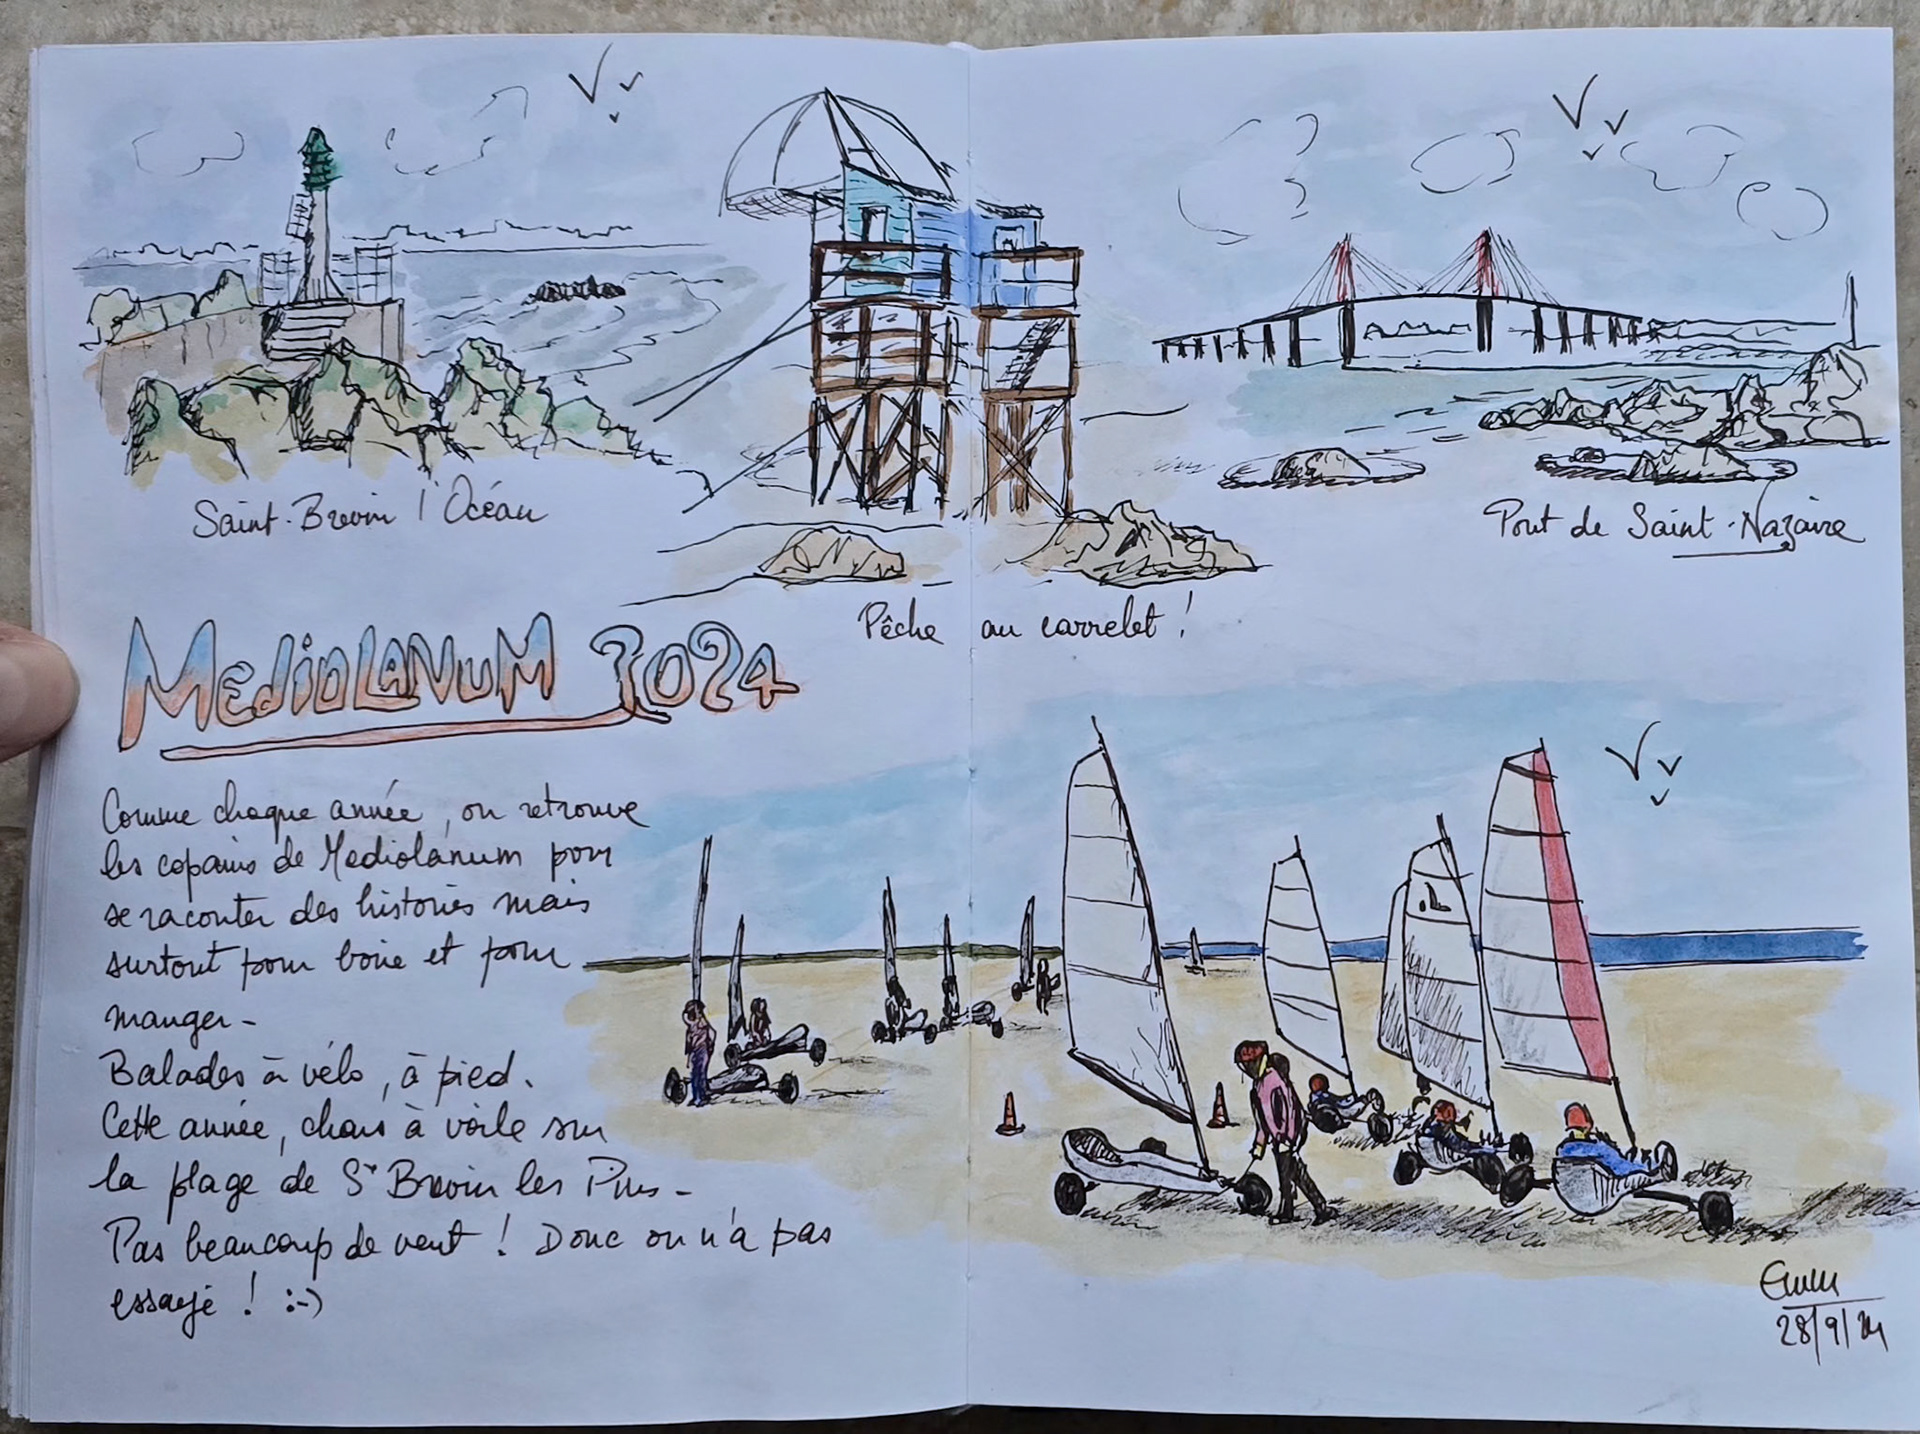 Saint-Brevin l'Océan
Pêche au carrelet !
Pont de Saint-Nazaire
MEDIOLANUM 2024
Comme chaque année, on retrouve
les copains de Mediolanum pour
se raconter des histoires mais
surtout pour boire et pour
manger -
Balades à vélo, à pied.
Cette année, chars à voile sur
la plage de St Brevin les Pins -
Pas beaucoup de vent ! Donc on n'a pas
essayé ! :-)
28/9/24